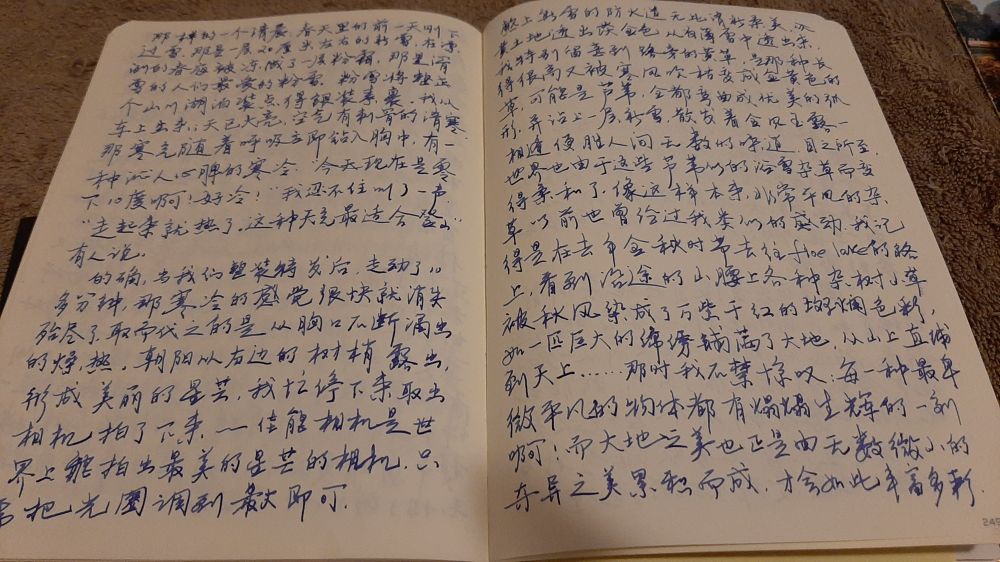 那样的一个清晨，春天里的前一天刚下
过雪，那是一层20厘米左右的新雪，在凛
冽的春寒被冻成了一层粉霜，那是滑
雪的人们最爱的粉雪。粉雪将整个
个山川湖泊装点得银装素裹。我从
车上出来，天已大亮，空气有新香的清寒，
那寒气随着呼吸立即钻入胸中，有一
种沁人心脾的寒冷。"今天现在是零
下10度啊！好冷！"我忍不住叫了一声
"走起来就热了，这种天气最适合登山"
有人说。
的确，当我们整装待发后，走动了10
多分钟，那寒冷的感觉很快就消失
殆尽了，取而代之的是从胸口不断涌出
的燥热。朝阳从右边的树梢露出，
形成美丽的星芒，我忙停下来取出
相机拍了下来——佳能相机是世
界上能拍出最美的星芒的相机，只
需把光圈调到最大即可。
上新雪的防火道无比清新柔美，
黄土地透出淡金色从白薄雪中透出来，
我特别留意到路旁的黄草，是那种长
得很高又被寒风吹枯变成金黄色的
草，可能是芦苇，全都弯曲成优美的弧
形，并沾上一层新雪，散发着金风玉露一
相逢便胜人间无数的味道，目之所至
世界也由于这些芦苇似的浴雪杂草而变
得柔和了。像这样本来非常平凡的杂
草以前也曾给过我类似的感动。我记
得是在去年金秋时节去往floe lake的路
上，看到沿途的山腰上各种杂树小草
被秋风染成了万紫千红的斑斓色彩，
如一匹巨大的锦缎铺满了大地，从山上直铺
到天上……那时我不禁惊叹：每一种最卑
微平凡的物体都有熠熠生辉的一刻
啊！而大地之美也正是由无数微小的
奇异之美累积而成，才会如此丰富多彩
245